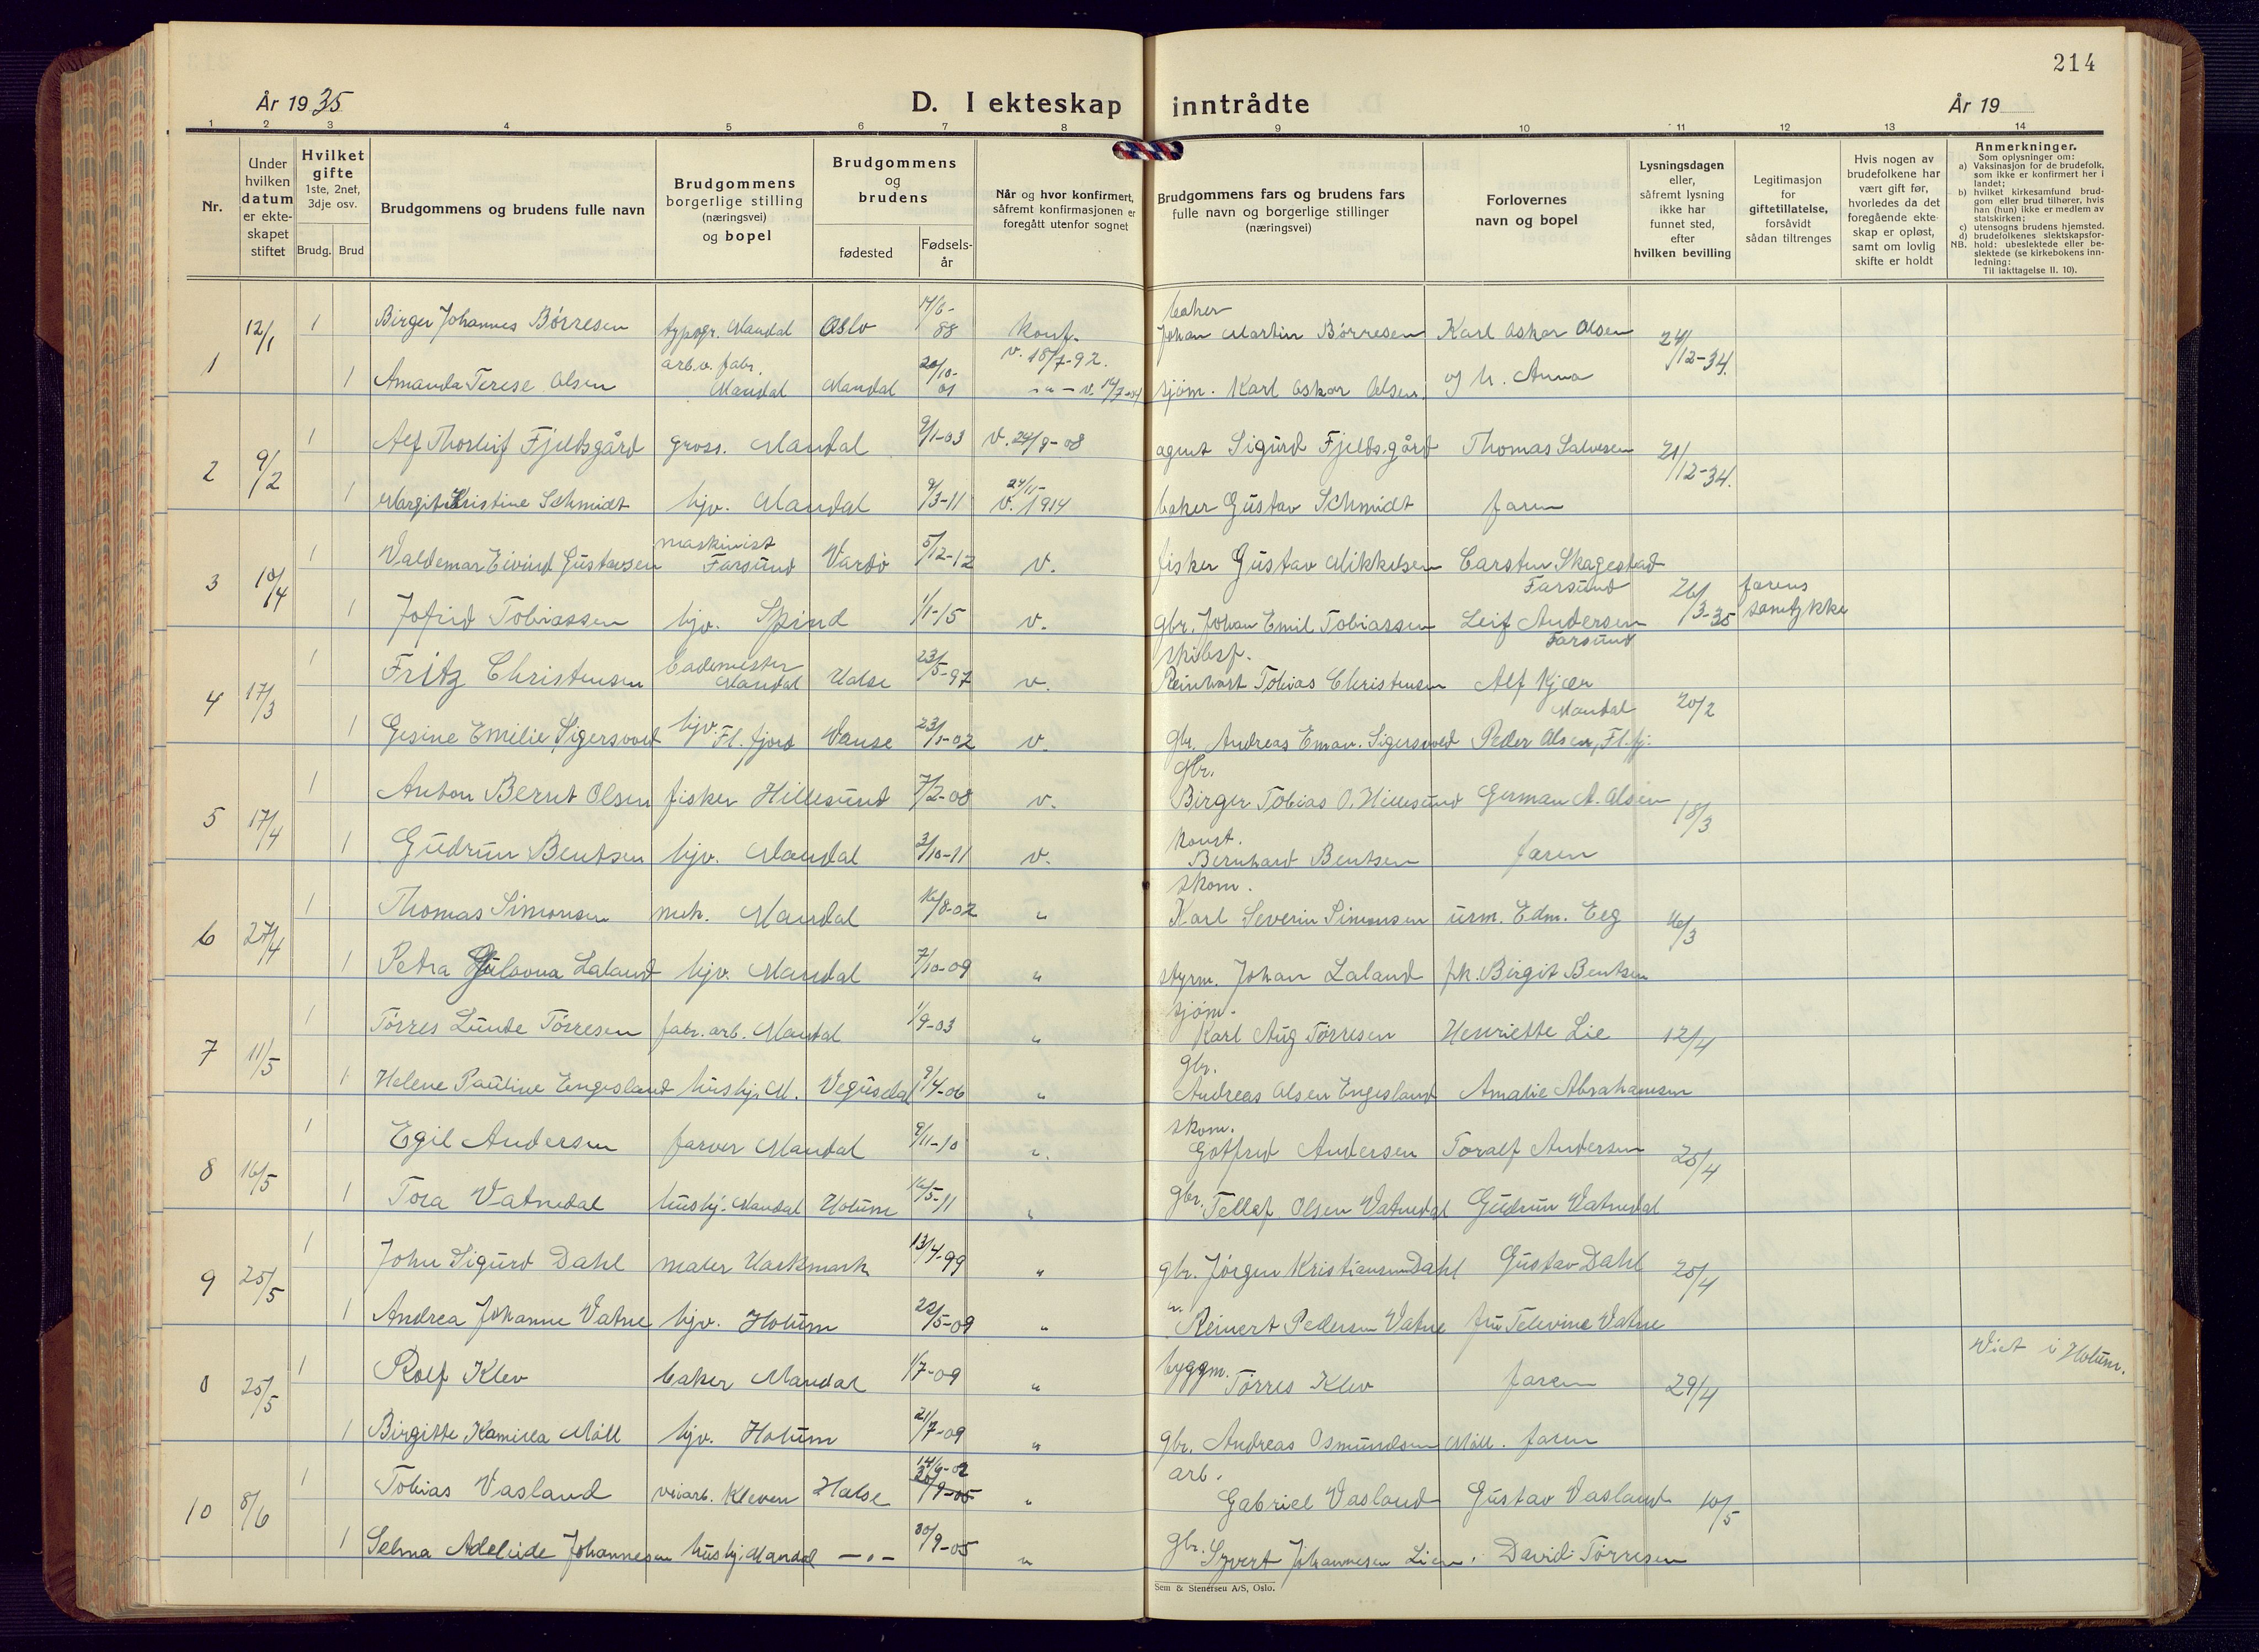 214
År 1935
D. I ekteskap inntrådte
År 19
1 2 3 4 5 6 7 8 9 10 11 12 13 14
Nr.
Under hvilken datum er ekteskapet stiftet
Hvilket gifte 1ste, 2net, 3dje osv.
Brudg. Brud
Brudgommens og brudens fulle navn
Brudgommens borgerlige stilling (næringsvei) og bopel
Brudgommens og brudens
fødested
Fødsels-år
Når og hvor konfirmert, såfremt konfirmasjonen er foregått utenfor sognet
Brudgommens fars og brudens fars fulle navn og borgerlige stillinger (næringsvei)
Forlovernes navn og bopel
Lysningsdagen eller, såfremt lysning ikke har funnet sted, efter hvilken bevilling
Legitimasjon for giftetillatelse, forsåvidt sådan tiltrenges
Hvis nogen av brudefolkene har vært gift før, hvorledes da det foregående ekteskap er opløst, samt om lovlig skifte er holdt
Anmerkninger.
Som oplysninger om:
a) Vaksinasjon for de brudefolk, som ikke er konfirmert her i landet;
b) hvilket kirkesamfund brudgom eller brud tilhører, hvis han (hun) ikke er medlem av statskirken;
c) utensogns brudens hjemsted.
d) brudefolkenes slektskapsforhold: ubeslektede eller beslektede (se kirkebokens innledning:
NB. Til iakttagelse II. 10).
1 12/1 1 Birger Johannes Börresen typogr. Mandal Oslo 88 Konf. v. 18/7-92. baker Johan Martin Börresen Karl Oskar Olsen 24/12-34.
1 Amanda Terese Olsen arb.v. fabr. Mandal Mandal 20/10-01 -"- v. sjöm. Karl Oskar Olsen og h. Anna
2 9/2 1 Alf Thorleif Fjeldsgård gross. Mandal 9/1-03 v. 24/9-08 agent Sigurd Fjeldsgård Thomas Salvesen 21/12-34.
1 Margit Kristine Schmidt hjv. Mandal 9/3-11 v. 24/11-1914 baker Gustav Schmidt faren
3 10/4 1 Valdemar Eivind Gustavsen maskinist Farsund Vardö 5/12-12 v. fisker Gustav Mikkelsen Carsten Skagestad Farsund 26/3-35 farens samtykke
1 Jofrid Tobiassen hjv. Spind 1/1-15 v. gbr. Johan Emil Tobiassen Leif Andersen Farsund
4 17/3 1 Fritz Christensen bademester Mandal Halse 23/5-97 v. skibsf. Reinhart Tobias Christensen Alf Kjær Mandal 20/2
1 Gesine Emilie Sigersvold hjv. Fl. fjord Vanse 23/1-02 v. gbr. Andreas Eman. Sigersvold Peder Olsen, Fl.fj.
5 17/4 1 Anton Bernt Olsen fisker Hillesund 7/2-08 v. gbr. Birger Tobias O. Hillesund German A. Olsen 18/3
1 Gudrun Bentsen hjv. Mandal 3/10-11 v. konst. Bernhard Bentsen faren
6 27/4 1 Thomas Simonsen mek. Mandal 16/8-02 " skom. Karl Severin Simonsen urm. Edm. Eeg 16/3
1 Petra Laland hjv. Mandal 7/10-09 " styrm. Johan Laland frk. Birgit Bentsen
7 11/5 1 Törres Lunde Törresen fabr. arb. Mandal 1/9-03 " sjöm. Karl Aug Törresen Henriette Lie 12/4
1 Helene Pauline Engesland hushj. M. Vegusdal 9/4-06 " gbr. Andreas Olsen Engesland Amalie Abrahamsen
8 16/5 1 Egil Andersen farver Mandal 9/11-10 " skom. Gotfred Andersen Toralf Andersen 25/4
1 Tora Vatnedal hushj. Mandal Holum 16/5-11 " gbr. Tellef Olsen Vatnedal Gudrun Vatnedal
9 25/5 1 John Sigurd Dahl maler Harkmark 13/4-99 " gbr. Jörgen Kristiansen Dahl Gustav Dahl 25/4
1 Andrea Johanne Vatne hjv. Holum 22/5-09 " " Reinert Pedersen Vatne fru Televine Vatne
0 25/5 1 Rolf Klev baker Mandal 1/7-09 " byggm. Törres Klev faren 29/4 Viet i Holum.
1 Birgitte Kamilla Möll hjv. Holum 21/7-09 " gbr. Andreas Osmundsen Möll. faren
10 8/6 1 Tobias Vasland veiarb. Kleven Halse 14/6-02 30/9-05 " arb. Gabriel Vasland Gustav Vasland 10/5
1 Selma Adeleide Johannesen hushj. Mandal -"- 30/9-05 " gbr. Syvert Johannesen Lien. David Törresen
Sem & Stenersen A/S, Oslo.